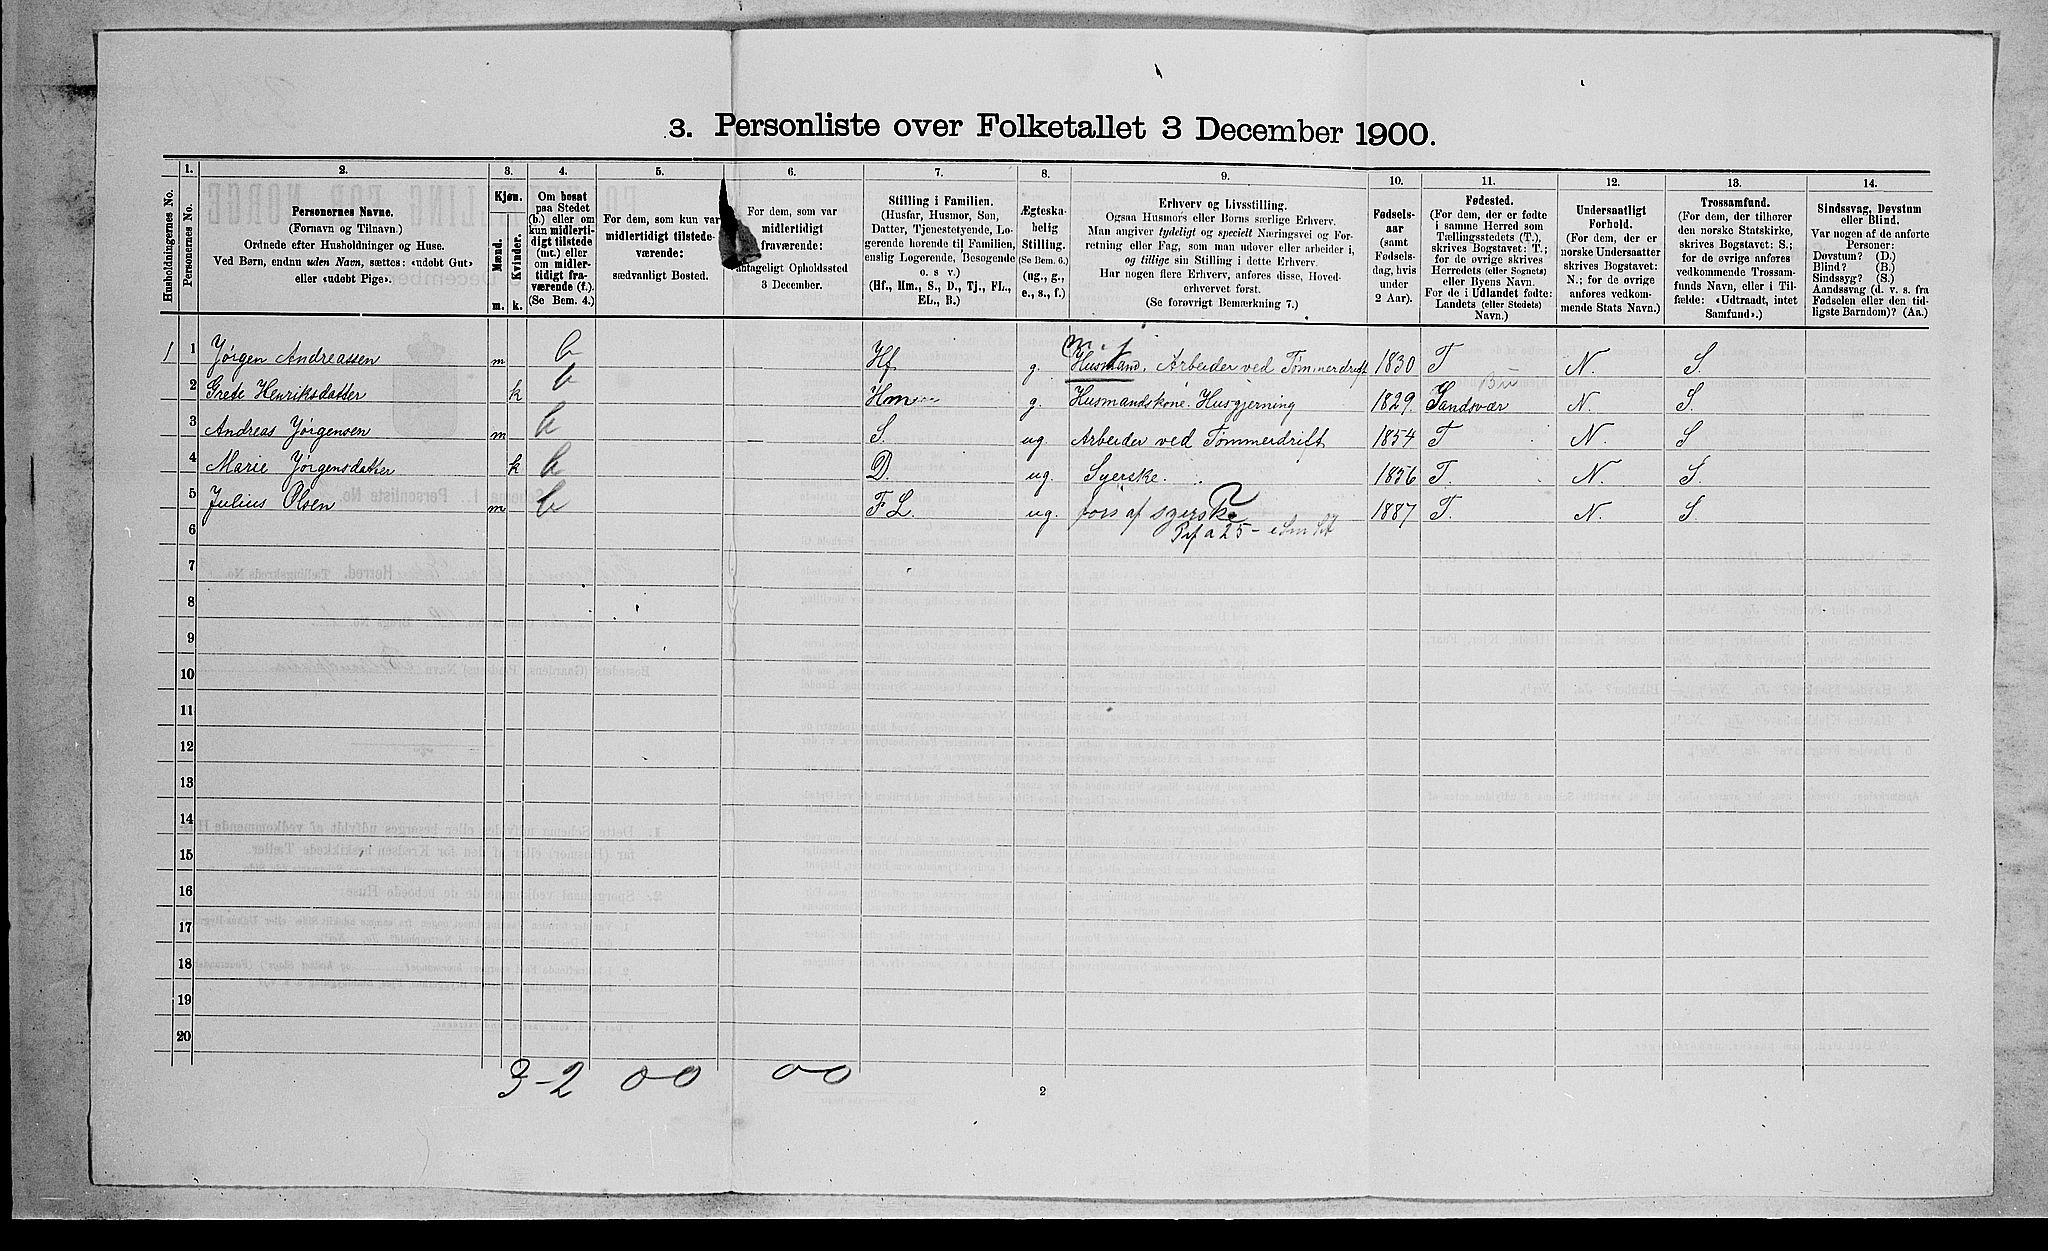 3. Personliste over Folketallet 3 December 1900.
Husholdningernes No.
1.
Personernes No.
2.
Personernes Navne.
(Fornavn og Tilnavn.)
Ordnede efter Husholdninger og Huse.
Ved Børn, endnu uden Navn, sættes: «udøbt Gut»
eller «udøbt Pige».
3.
Kjøn.
Mænd.
Kvinder.
m.
k.
4.
Om bosat
paa Stedet
(b.) eller om
kun midlerti-
digt tilstede
(mt.) eller
om midler-
tidigt fra-
værende (f.)
(Se Bem. 4.)
5.
For dem, som kun var
midlertidigt tilstede-
værende:
sædvanligt Bosted.
6.
For dem, som var
midlertidigt
fraværende:
antageligt Opholdssted
3 December.
7.
Stilling i Familien.
(Husfar, Husmor, Søn,
Datter, Tjenestetyende, Lo-
gerende hørende til Familien,
enslig Logerende, Besøgende
o. s v.)
(Hf., Hm., S., D., Tj., FL.,
EL., B.)
8.
Ægteska-
belig
Stilling.
(Se Bem. 6.)
(ug., g.,
e., s., f.)
9.
Erhverv og Livsstilling.
Ogsaa Husmors eller Børns særlige Erhverv.
Man angiver tydeligt og specielt Næringsvei og For-
retning eller Fag, som man udøver eller arbeider i,
og tillige sin Stilling i dette Erhverv.
Har nogen flere Erhverv, anføres disse, Hoved-
erhvervet først.
(Se forøvrigt Bemærkning 7.)
10.
Fødsels-
aar
(samt
Fødsels-
dag, hvis
under
2 Aar).
11.
Fødested.
(For dem, der er fødte
i samme Herred som
Tællingsstedets (T.),
skrives Bogstavet: T.;
for de øvrige skrives
Herredets (eller Sognets)
eller Byens Navn.
For de i Udlandet fødte:
Landets (eller Stedets)
Navn.)
12.
Undersaatligt
Forhold.
(For dem, der er
norske Undersaatter
skrives Bogstavet:
N.; for de øvrige
anføres vedkom-
mende Stats Navn.)
13.
Trossamfund.
(For dem, der tilhører
den norske Statskirke,
skrives Bogstavet: S.;
for de øvrige anføres
vedkommende Trossam-
funds Navn, eller i Til-
fælde: «Udtraadt, intet
Samfund».)
14.
Sindssvag, Døvstum
eller Blind.
Var nogen af de anførte
Personer:
Døvstum? (D.)
Blind? (B.)
Sindssyg? (S.)
Aandssvag (d. v. s. fra
Fødselen eller den tid-
ligste Barndom)? (Aa.)
1 1 Jørgen Andreassen m b Hf g. Husmand. Arbeider ved Tømmerdrift 1830 T N. S.
Bu
2 Grete Henriksdatter k b Hm g. Husmandskone. Husgjerning 1829. Sandsvær N. S.
3 Andreas Jørgensen m b S. ug. Arbeider ved Tømmerdrift 1854 T N. S
4 Marie Jørgensdatter k b D. ug. Syerske. 1856 T. N. S.
5 Julius Olsen m b FL. ug. fors af syerske 1887 T. N. S.
6
7
8
9
10
11
12
13
14
15
16
17
18
19
20
3-2 00 00
2